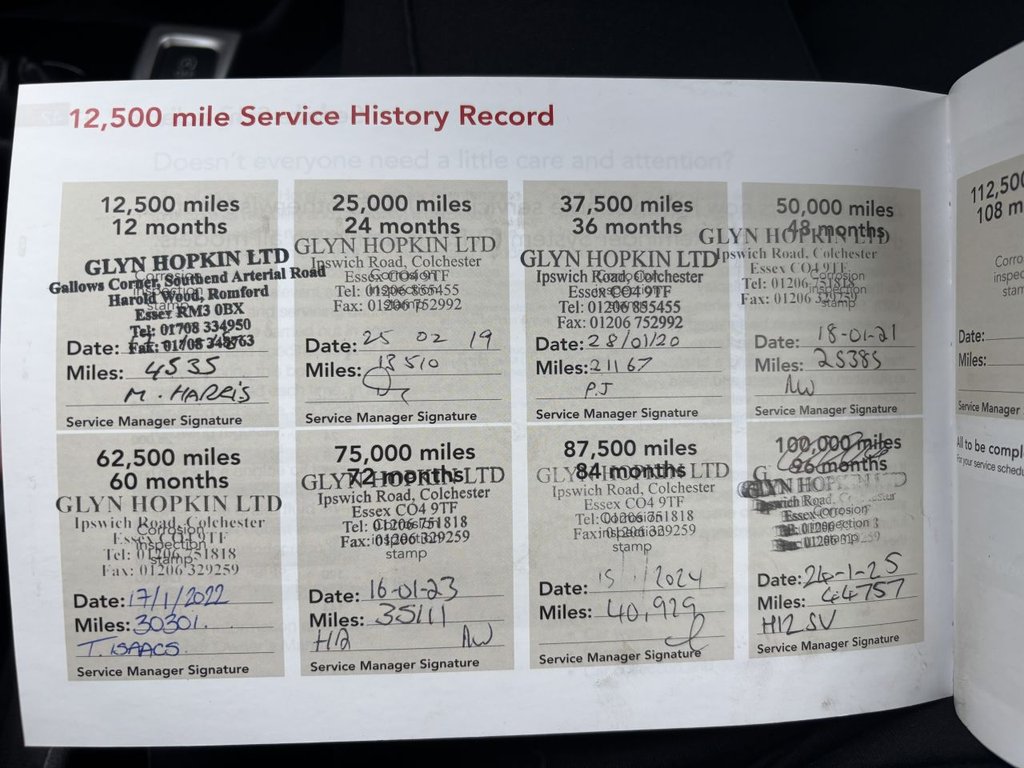 12,500 mile Service History Record
Doesn't everyone need a little care and attention?
12,500 miles
12 months
GLYN HOPKIN LTD
Gallows Corner, Southend Arterial Road
Harold Wood, Romford
Essex RM3 0BX
Tel: 01708 334950
Fax: 01708 348763
Corrosion
inspection
stamp
Date:
Miles: 4535
M. HARRIS
Service Manager Signature
25,000 miles
24 months
GLYN HOPKIN LTD
Ipswich Road, Colchester
Essex CO4 9TF
Tel: 01206 855455
Fax: 01206 752992
Date: 25 02 19
Miles: 13510
Service Manager Signature
37,500 miles
36 months
GLYN HOPKIN LTD
Ipswich Road, Colchester
Essex CO4 9TF
Tel: 01206 855455
Fax: 01206 752992
Date: 28/01/20
Miles: 21167
P.J
Service Manager Signature
50,000 miles
48 months
GLYN HOPKIN LTD
Ipswich Road, Colchester
Essex CO4 9TF
Tel: 01206 751818
Fax: 01206 329259
Corrosion
inspection
stamp
Date: 18-01-21
Miles: 25385
Service Manager Signature
62,500 miles
60 months
GLYN HOPKIN LTD
Ipswich Road, Colchester
Essex CO4 9TF
Tel: 01206 751818
Fax: 01206 329259
Corrosion
inspection
stamp
Date: 17/1/2022
Miles: 30301.
T. ISAACS
Service Manager Signature
75,000 miles
72 months
GLYN HOPKIN LTD
Ipswich Road, Colchester
Essex CO4 9TF
Tel: 01206 751818
Fax: 01206 329259
stamp
Date: 16-01-23
Miles: 35111
Service Manager Signature
87,500 miles
84 months
GLYN HOPKIN LTD
Ipswich Road, Colchester
Essex CO4 9TF
Tel: 01206 751818
Fax: 01206 329259
stamp
Date: 15/1/2024
Miles: 40,929
Service Manager Signature
100,000 miles
96 months
GLYN HOPKIN
Ipswich Road,
Essex
Corrosion
inspection
stamp
Date: 24-1-25
Miles: 44757
H12 SV
Service Manager Signature
112,500
108 m
Corro
inspec
stam
Date:
Miles:
Service Manager
All to be compl
For your service schedu